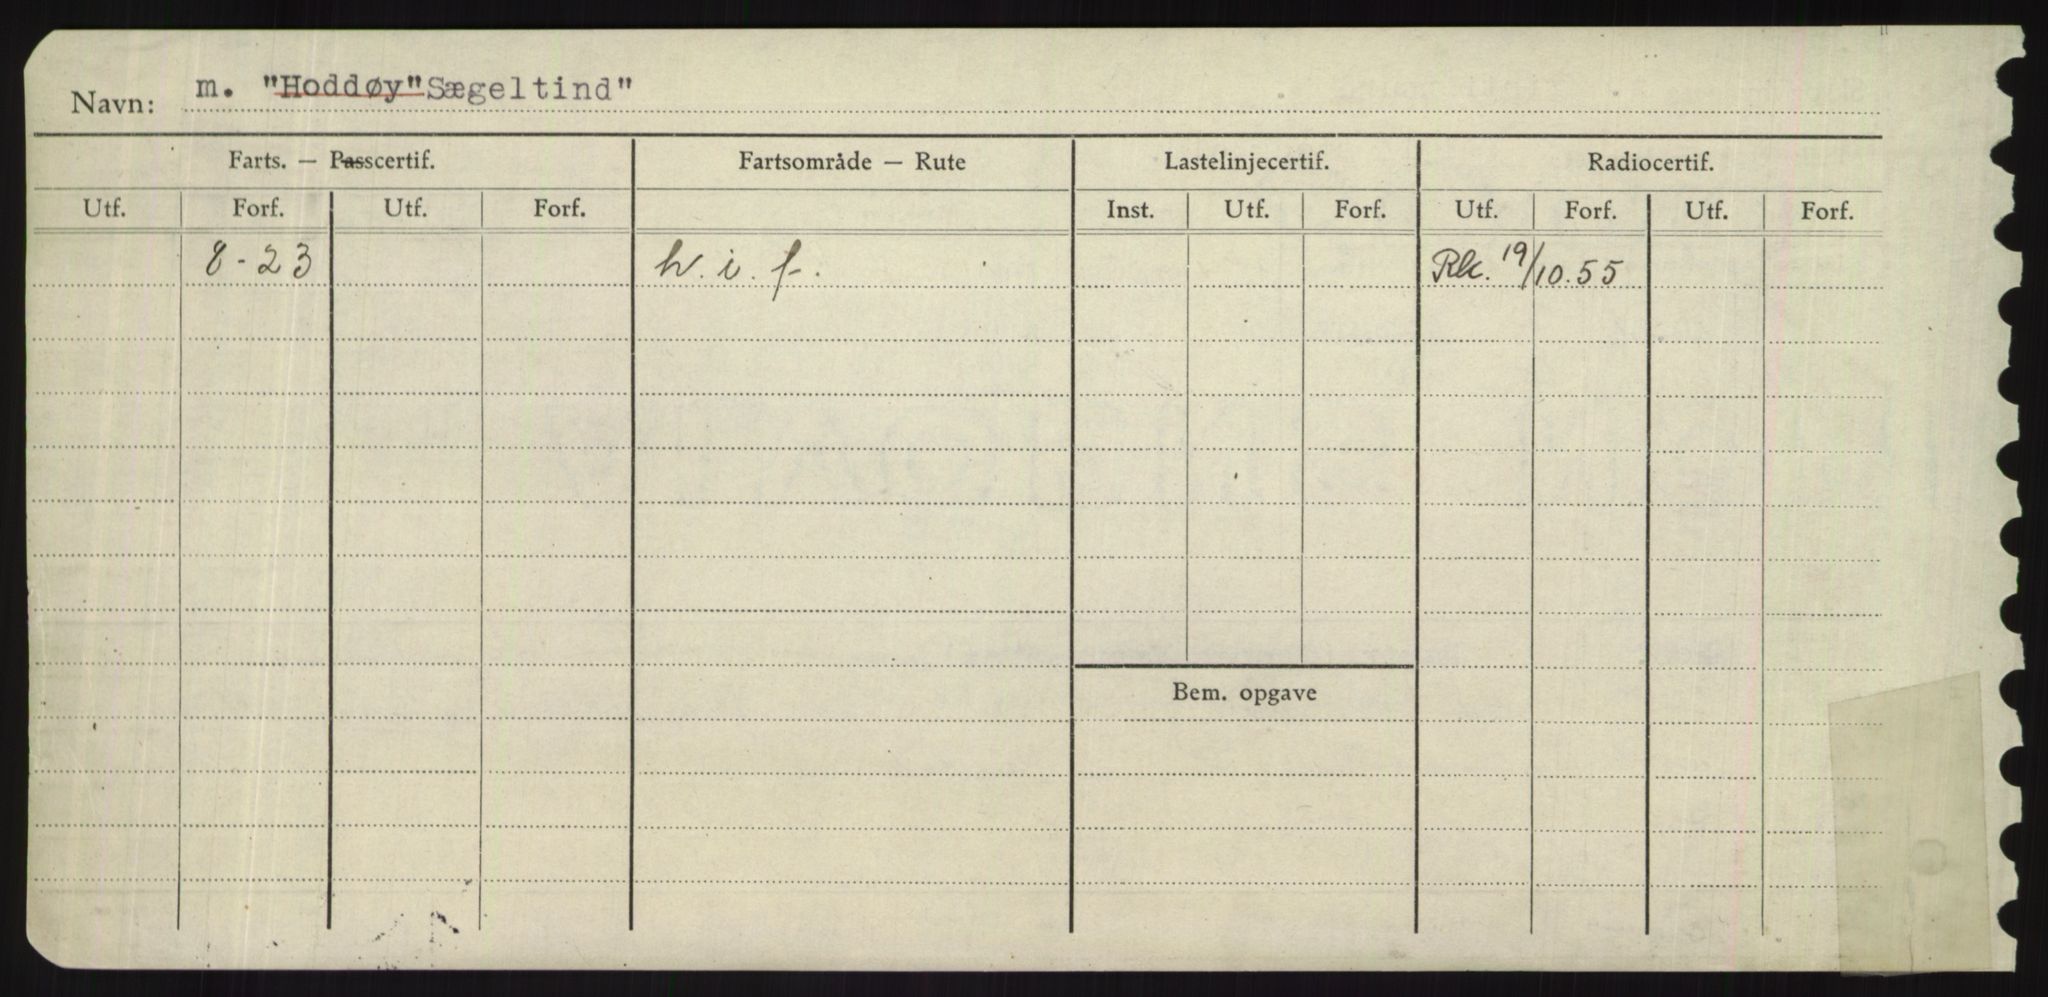 Navn: m. "Hoddøy"Sægeltind"
Farts. — Passcertif. Fartsområde — Rute Lastelinjecertif. Radiocertif.
Utf. Forf. Utf. Forf. Inst. Utf. Forf. Utf. Forf. Utf. Forf.
8-23 h. i. f. Rk. 19/10.55
Bem. opgave